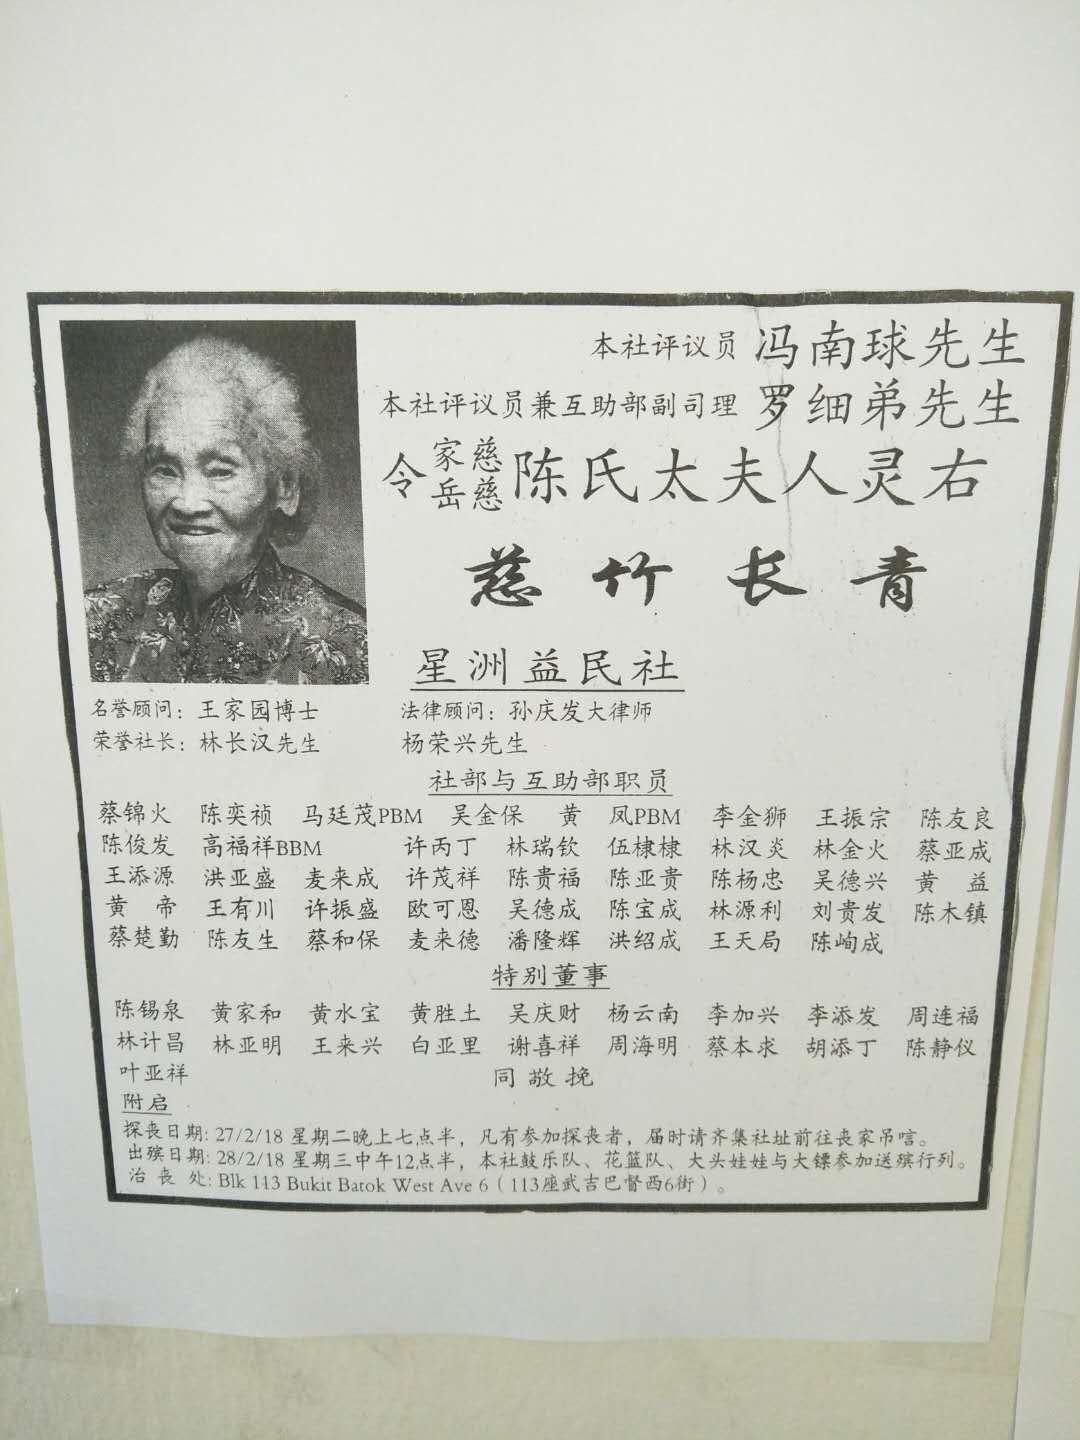 本社评议员 冯南球先生
本社评议员兼互助部副司理 罗细弟先生
令家慈岳慈陈氏太夫人灵右
慈竹长青
星洲益民社
名誉顾问：王家园博士 法律顾问：孙庆发大律师
荣誉社长：林长汉先生 杨荣兴先生
社部与互助部职员
蔡锦火 陈奕祯 马廷茂PBM 吴金保 黄 凤PBM 李金狮 王振宗 陈友良
陈俊发 高福祥BBM 许丙丁 林瑞钦 伍棣棣 林汉炎 林金火 蔡亚成
王添源 洪亚盛 麦来成 许茂祥 陈贵福 陈亚贵 陈杨忠 吴德兴 黄 益
黄 帝 王有川 许振盛 欧可恩 吴德成 陈宝成 林源利 刘贵发 陈木镇
蔡楚勤 陈友生 蔡和保 麦来德 潘隆辉 洪绍成 王天局 陈峋成
特别董事
陈锡泉 黄家和 黄水宝 黄胜土 吴庆财 杨云南 李加兴 李添发 周连福
林计昌 林亚明 王来兴 白亚里 谢喜祥 周海明 蔡本求 胡添丁 陈静仪
叶亚祥 同敬挽
附启
探丧日期: 27/2/18 星期二晚上七点半，凡有参加探丧者，届时请齐集社址前往丧家吊唁。
出殡日期: 28/2/18 星期三中午12点半，本社鼓乐队、花篮队、大头娃娃与大镖参加送殡行列。
治 丧 处: Blk 113 Bukit Batok West Ave 6（113座武吉巴督西6街）。